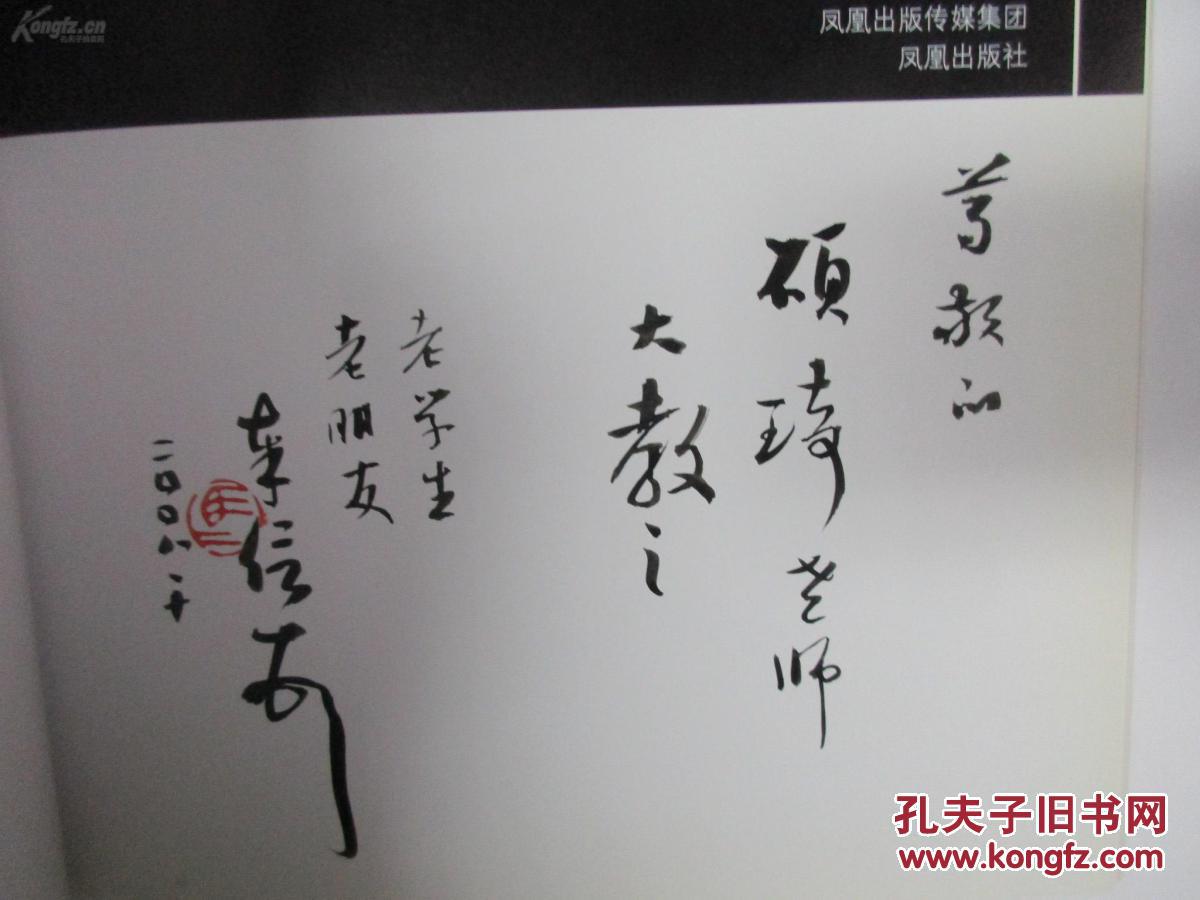 Kongfz.cn
孔夫子旧书网
凤凰出版传媒集团
凤凰出版社
尊敬的
硕琦老师
大教之
老学生
老朋友
信
二〇〇八
孔夫子旧书网
www.kongfz.com